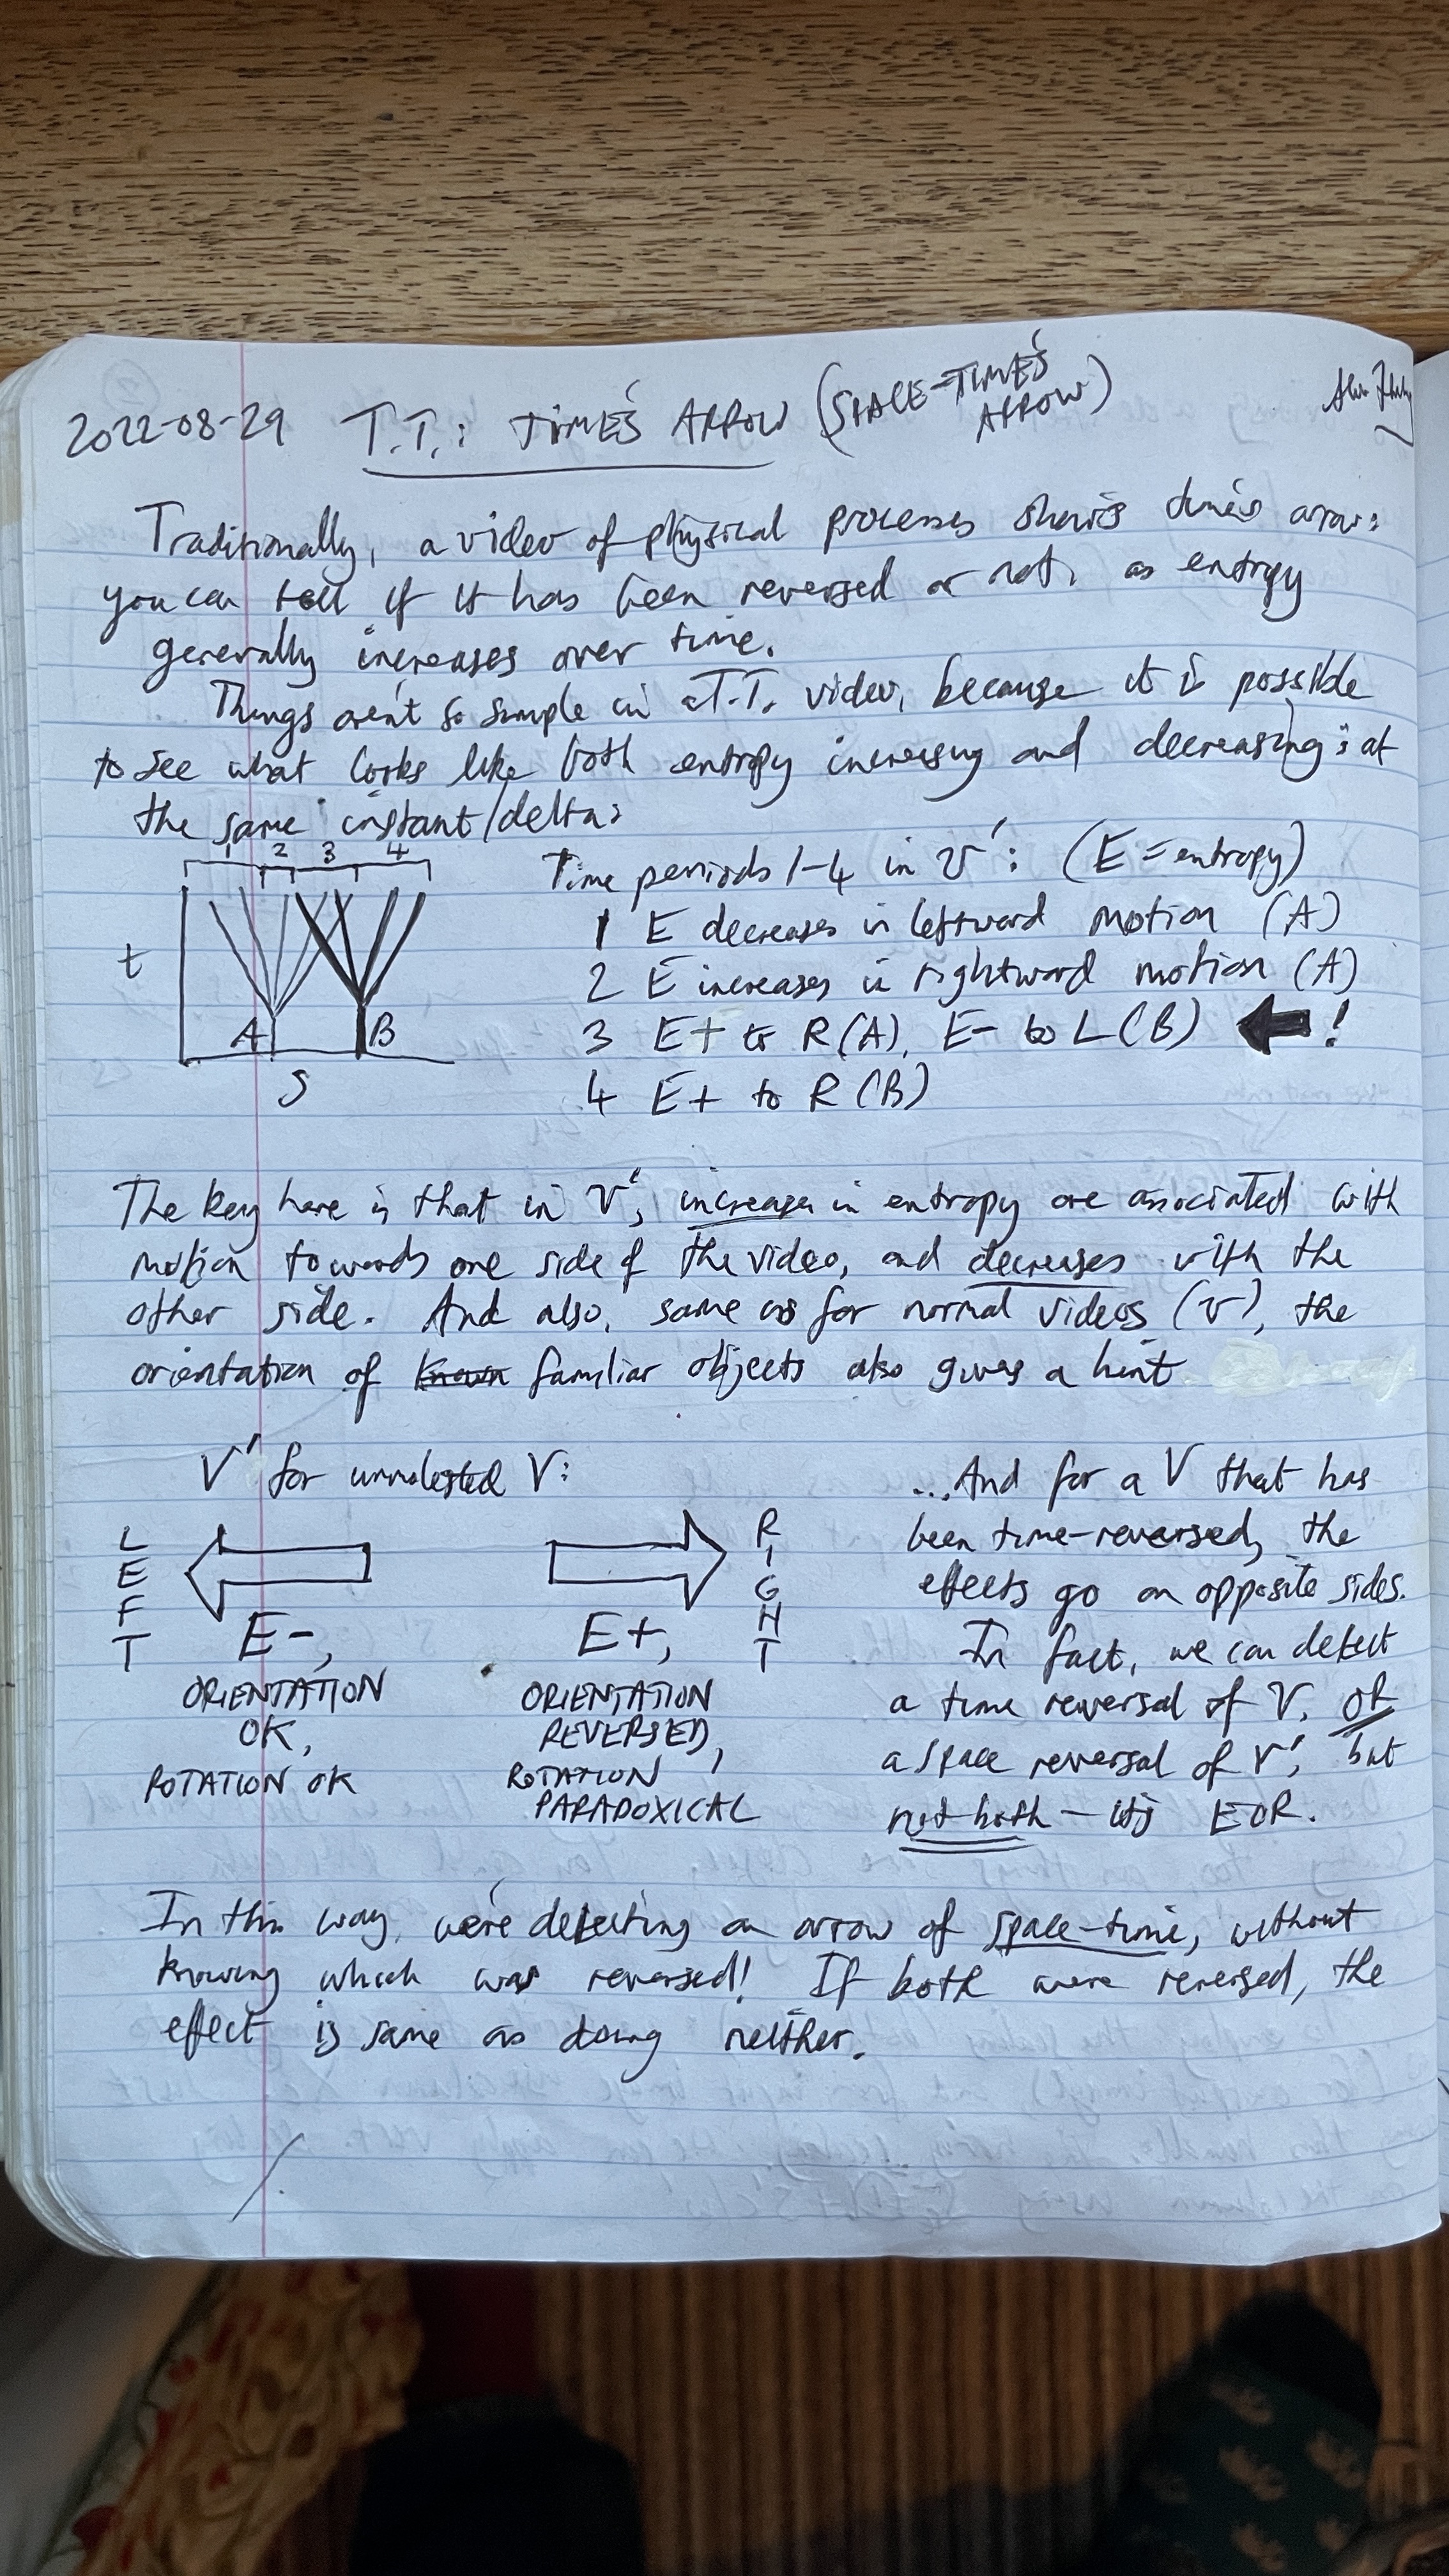 2022-08-29 T.T.: TIME'S ARROW (SPACE-TIME'S
ARROW)
Traditionally, a video of physical processes shows time's arrow:
you can tell if it has been reversed or not, as entropy
generally increases over time.
Things aren't so simple in a T.T. video, because it is possible
to see what looks like both entropy increasing and decreasing: at
the same instant/delta:
1 2 3 4
t
A B
S
Time periods 1-4 in V': (E = entropy)
1 E decreases in leftward motion (A)
2 E increases in rightward motion (A)
3 E+ to R(A), E- to L(B) ⬅!
4 E+ to R(B)
The key here is that in V', increases in entropy are associated with
motion towards one side of the video, and decreases with the
other side. And also, same as for normal videos (V), the
orientation of known familiar objects also gives a hint
V' for unmolested V:
LEFT
E-,
ORIENTATION
OK,
ROTATION OK
RIGHT
E+,
ORIENTATION
REVERSED,
ROTATION
PARADOXICAL
...And for a V that has
been time-reversed, the
effects go on opposite sides.
In fact, we can detect
a time reversal of V, or
a space reversal of V', but
not both – it's EOR.
In this way, we're detecting an arrow of space-time, without
knowing which was reversed! If both were reversed, the
effect is same as doing neither.